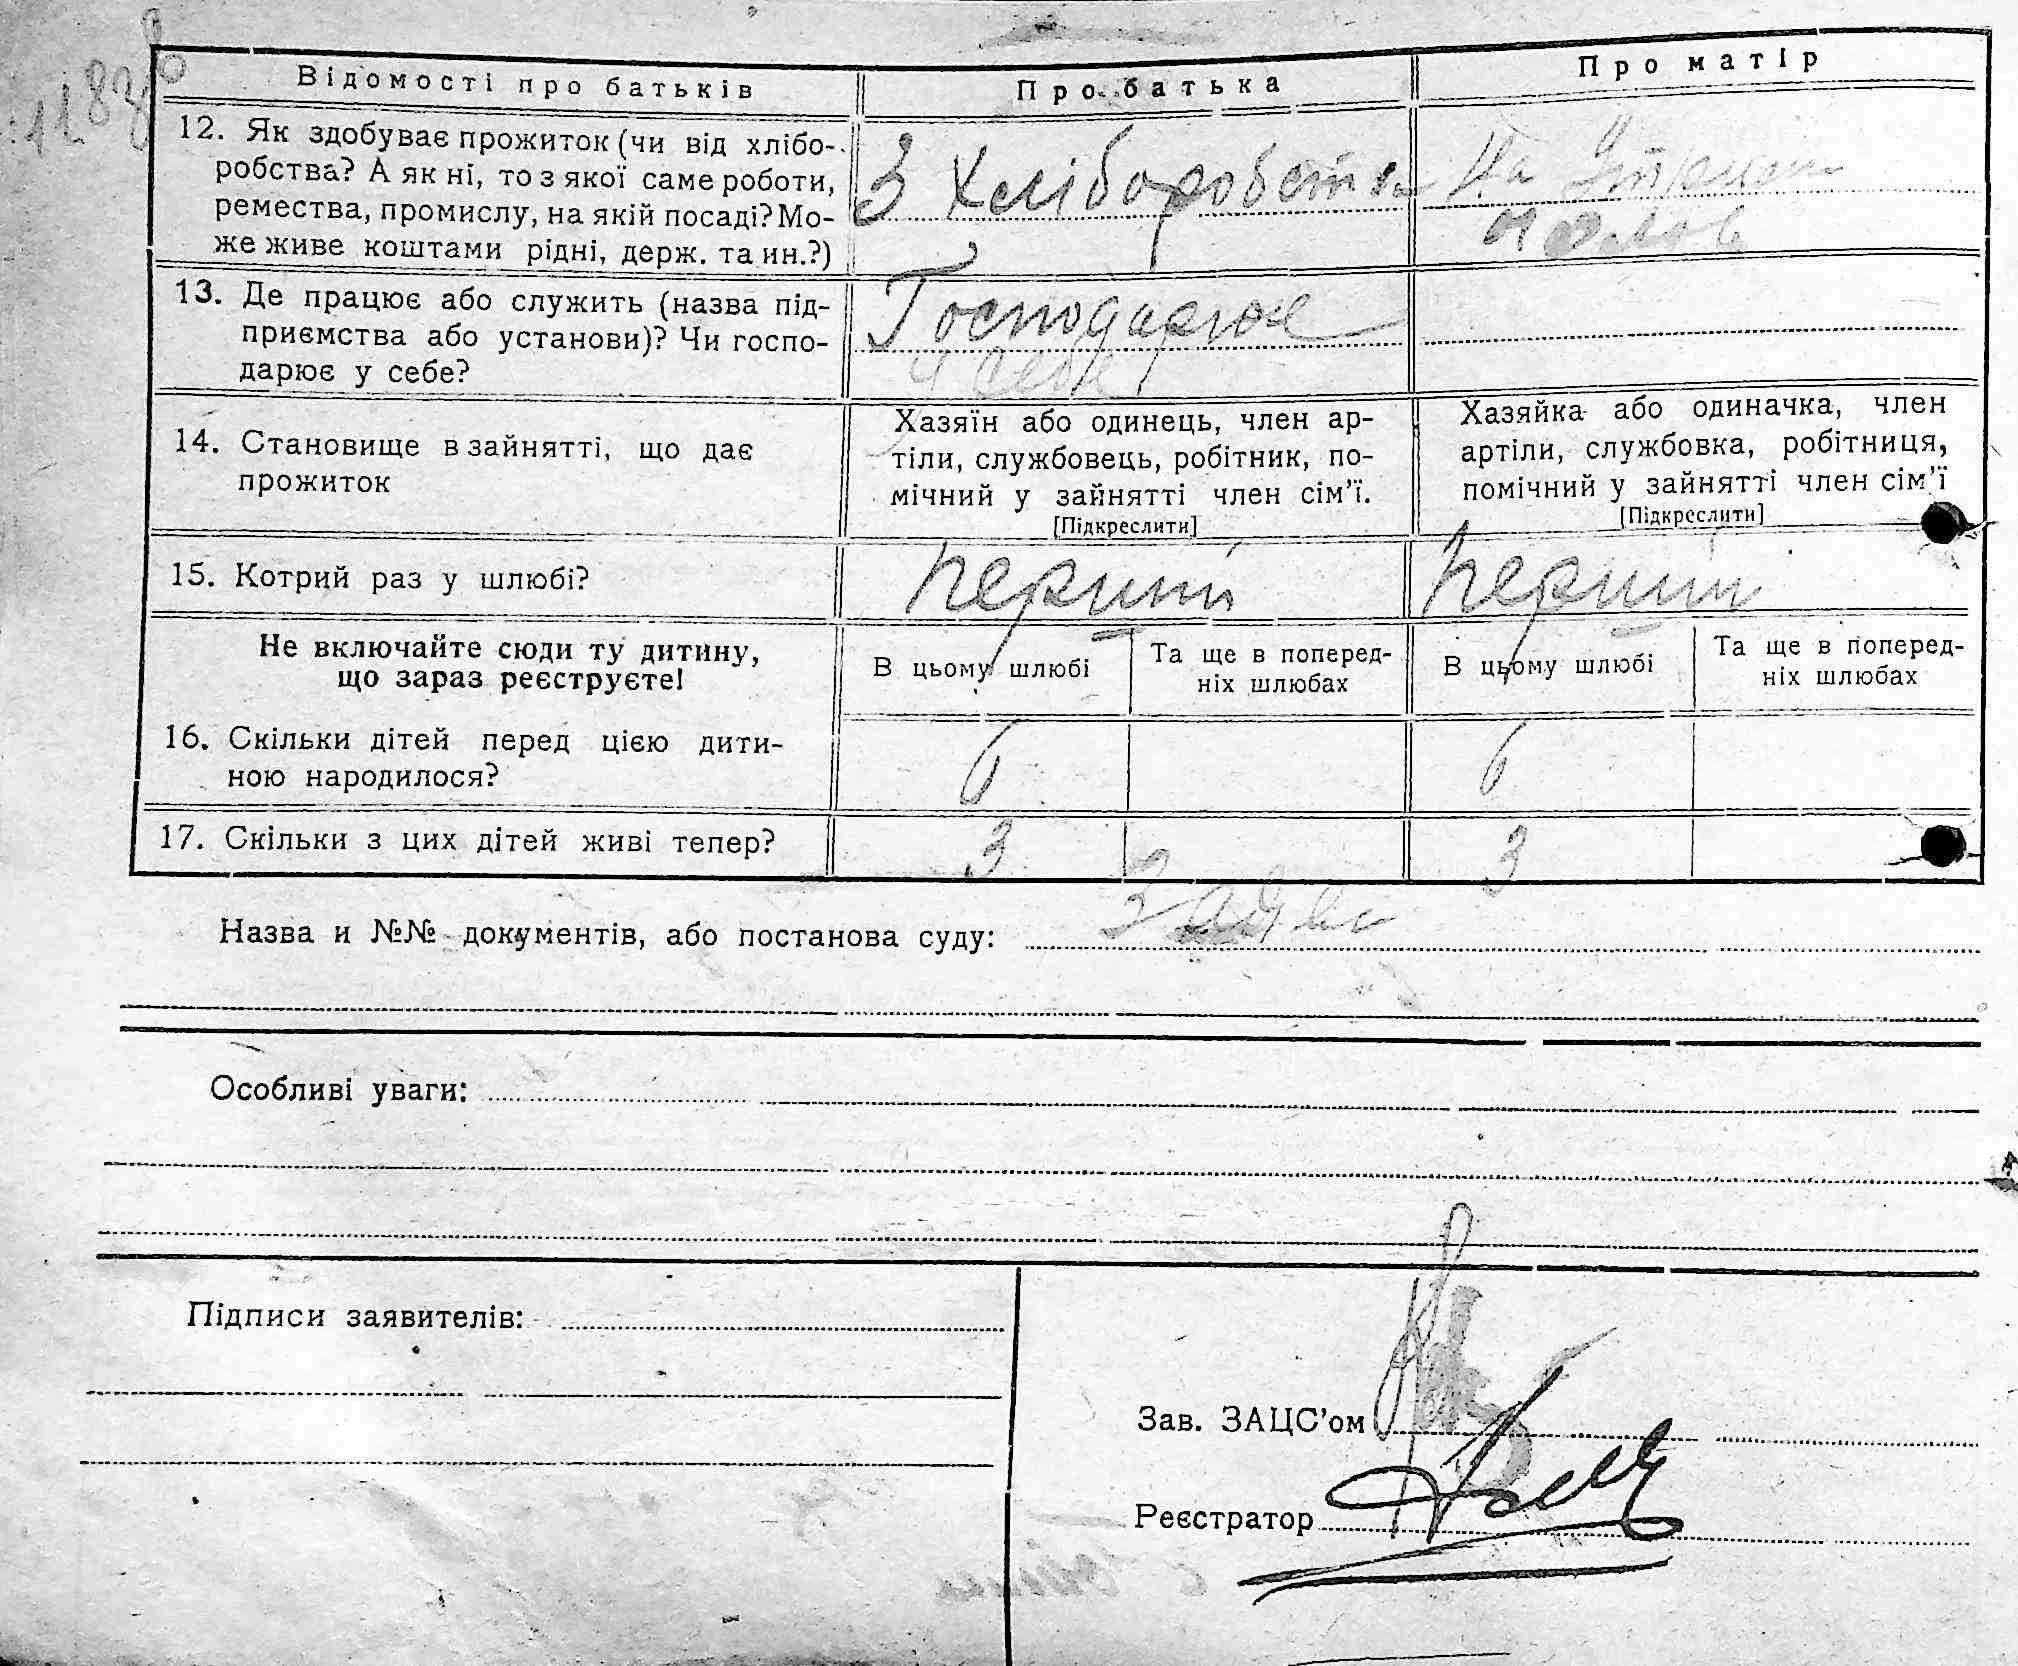 Відомості про батьків
Про батька
Про матір
12. Як здобуває прожиток (чи від хлібо-
робства? А як ні, то з якої саме роботи,
ремества, промислу, на якій посаді? Мо-
же живе коштами рідні, держ. та ин.?)
З хліборобства
На
13. Де працює або служить (назва під-
приємства або установи)? Чи госпо-
дарює у себе?
Господарює
у себе
14. Становище в зайнятті, що дає
прожиток
Хазяїн або одинець, член ар-
тіли, службовець, робітник, по-
мічний у зайнятті член сім'ї.
[Підкреслити]
Хазяйка або одиначка, член
артіли, службовка, робітниця,
помічний у зайнятті член сім'ї
[Підкреслити]
15. Котрий раз у шлюбі?
перший
перший
Не включайте сюди ту дитину,
що зараз реєструєте!
В цьому шлюбі
Та ще в поперед-
ніх шлюбах
В цьому шлюбі
Та ще в поперед-
ніх шлюбах
16. Скільки дітей перед цією дити-
ною народилося?
6
6
17. Скільки з цих дітей живі тепер?
3
3
Назва и №№ документів, або постанова суду:
Особливі уваги:
Підписи заявителів:
Зав. ЗАЦС'ом
Реєстратор